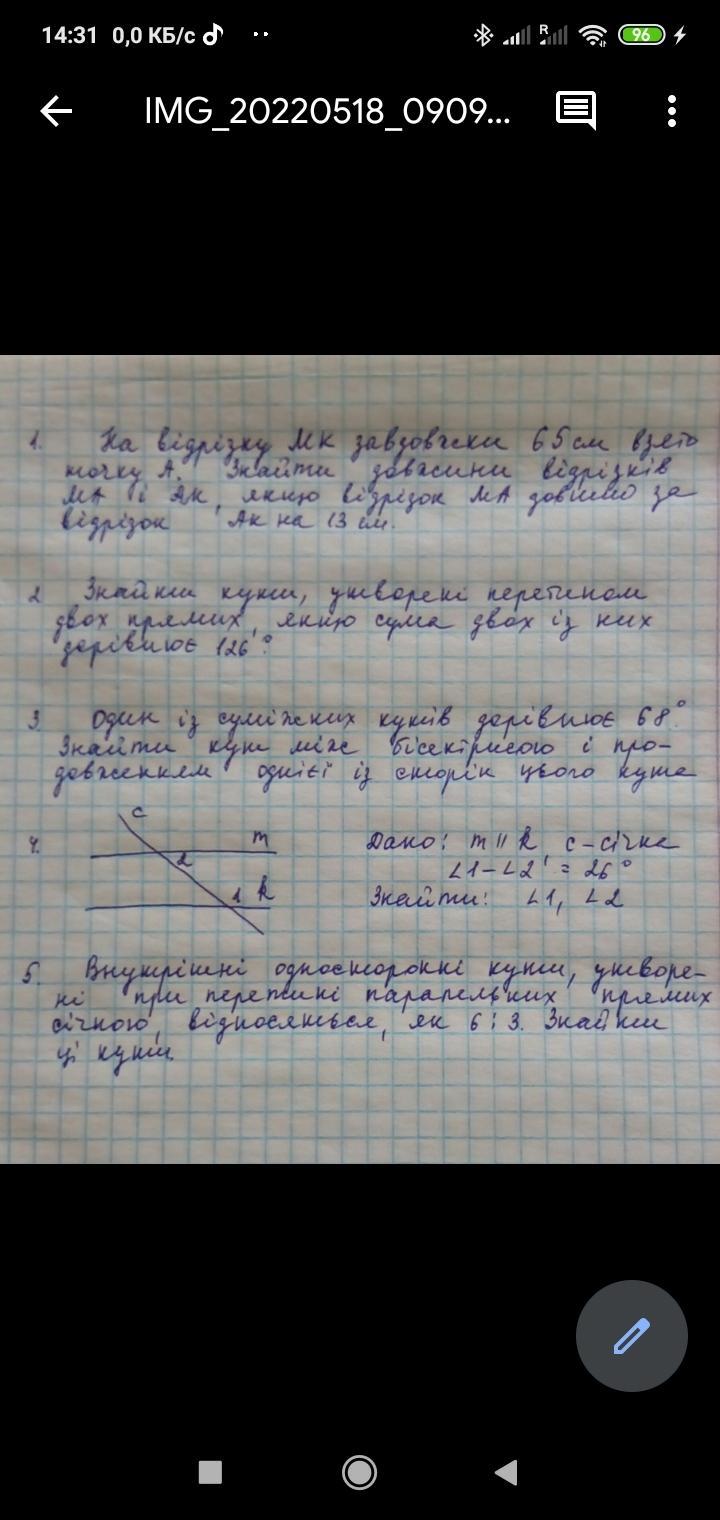 14:31 0,0 КБ/с
R
96
IMG_20220518_0909...
1. На відрізку МК завдовжки 65 см взято
точку А. Знайти довжини відрізків
МА і АК, якщо відрізок МА довший за
відрізок АК на 13 см.
2 Знайти кути, утворені перетином
двох прямих, якщо сума двох із них
дорівнює 126°.
3. Один із суміжних кутів дорівнює 68°.
Знайти кут між бісектрисою і про-
довженням однієї із сторін цього кута
4.
c
m
2
1 k
Дано: m || k, c - січна
∠1-∠2 = 26°
Знайти: ∠1, ∠2
5. Внутрішні односторонні кути, утворе-
ні при перетині паралельних прямих
січною, відносяться, як 6:3. Знайти
ці кути.